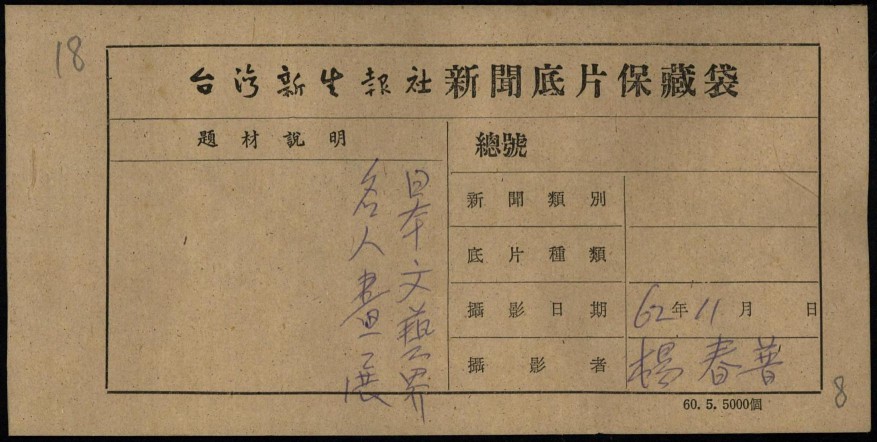 18
台湾新生報社新聞底片保藏袋
題材說明
日本文藝界
名人畫展
總號
新聞類別
底片種類
攝影日期 62年11月 日
攝影者 楊春普
60.5.5000個
8